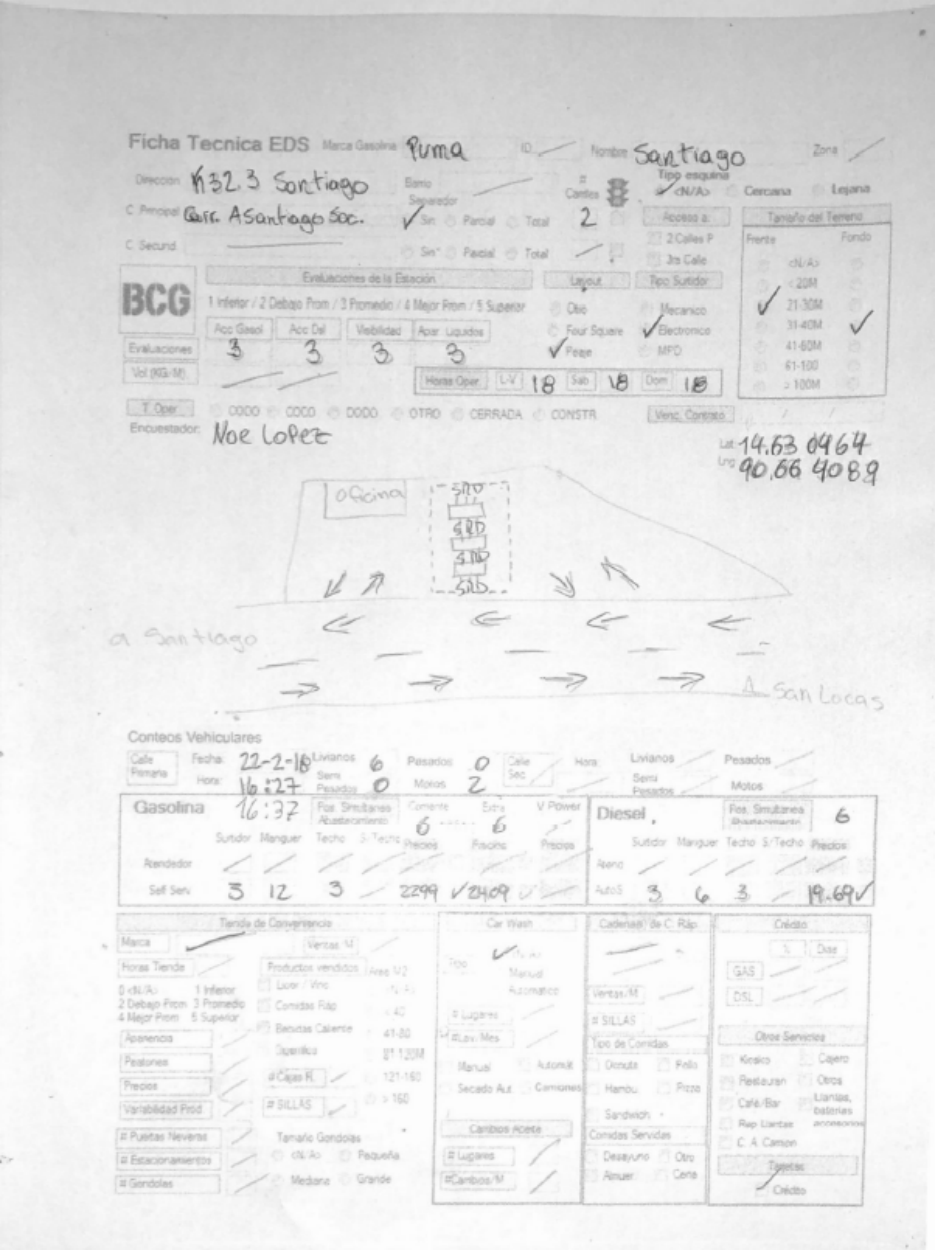 Ficha Tecnica EDS Marca Gasolina Puma ID Nombre Santiago Zona
Direccion K32.3 Santiago Barrio # Carriles Tipo esquina <N/A> Cercana Lejana
C. Principal Carr. A Santiago Sac. Separador Sin Parcial Total 2 Acceso a: Tamaño del Terreno
C. Secund. Sin Parcial Total 2 Calles P Frente Fondo
3ra Calle <N/A>
BCG Evaluaciones de la Estación Layout Tipo Surtidor < 20M
1 Inferior / 2 Debajo Prom / 3 Promedio / 4 Mejor Prom / 5 Superior Mecanico 21-30M
Acc Gasol Acc Dsl Visibilidad Apar. Liquidos Four Square Electronico 31-40M
Evaluaciones 3 3 3 3 MPD 41-60M
Vol (KG/M) Horas Oper. L-V 18 Sab 18 Dom 18 61-100
> 100M
T. Oper. COCO DODO OTRO CERRADA CONSTR. Venc. Contrato / /
Encuestador: Noe Lopez
Lat 14.63 0464
Lng 90.66 4089
Oficina SRD
SRD
SRD
SRD
a Santiago
A San Locas
Conteos Vehiculares
Calle Primaria Fecha: 22-2-18 Livianos 6 Pesados 0 Calle Sec Hora Livianos Pesados
Hora: 16:27 Semi Pesados 0 Motos 2 Semi Pesados Motos
Gasolina 16:37 Pos. Simultanea Abastecimiento Corriente 6 Extra 6 V Power Diesel Pos. Simultanea Abastecimiento 6
Surtidor Manguer Techo S/Techo Precios Precios Precios Surtidor Manguer Techo S/Techo Precios
Atendedor
Self Serv. 3 12 3 2299 2409 AutoS 3 6 3 19.69
Tienda de Conveniencia Car Wash Cadenas de C. Ráp Crédito
Marca Ventas/M <N/A> % Dias
Horas Tienda Productos vendidos Area M2 Tipo Manual GAS
0 <N/A> 1 Inferior Licor / Vino <N/A> Automatico Ventas/M DSL
2 Debajo Prom 3 Promedio Comidas Ráp < 40 # Lugares
4 Mejor Prom 5 Superior Bebidas Caliente 41-80 #Lav. Mes # SILLAS
Apariencia 81-120M Tipo de Comidas Otros Servicios
Peatones # Cajas R. 121-160 Manual Automát Donuts Pollo Kiosko Cajero
Precios > 160 Secado Aut Camiones Hambu Pizza Restauran Otros
Variabilidad Prod # SILLAS Sandwich Café/Bar Llantas, baterias accesorios
# Puertas Neveras Tamaño Gondolas Cambios Aceite Comidas Servidas Rep Llantas
# Estacionamientos <N/A> Pequeña # Lugares Desayuno Otro C. A. Camion
# Gondolas Mediana Grande #Cambios/M Almuer Cena Tarjetas
Crédito